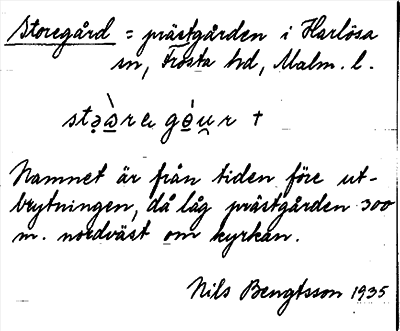 Storegård = prästgården i Harlösa
sn, Frosta hd, Malm. l.
stə̀ɔrɐ gə́u̯r †
Namnet är från tiden före ut-
brytningen, då låg prästgården 300
m. nordväst om kyrkan.
Nils Bengtsson 1935